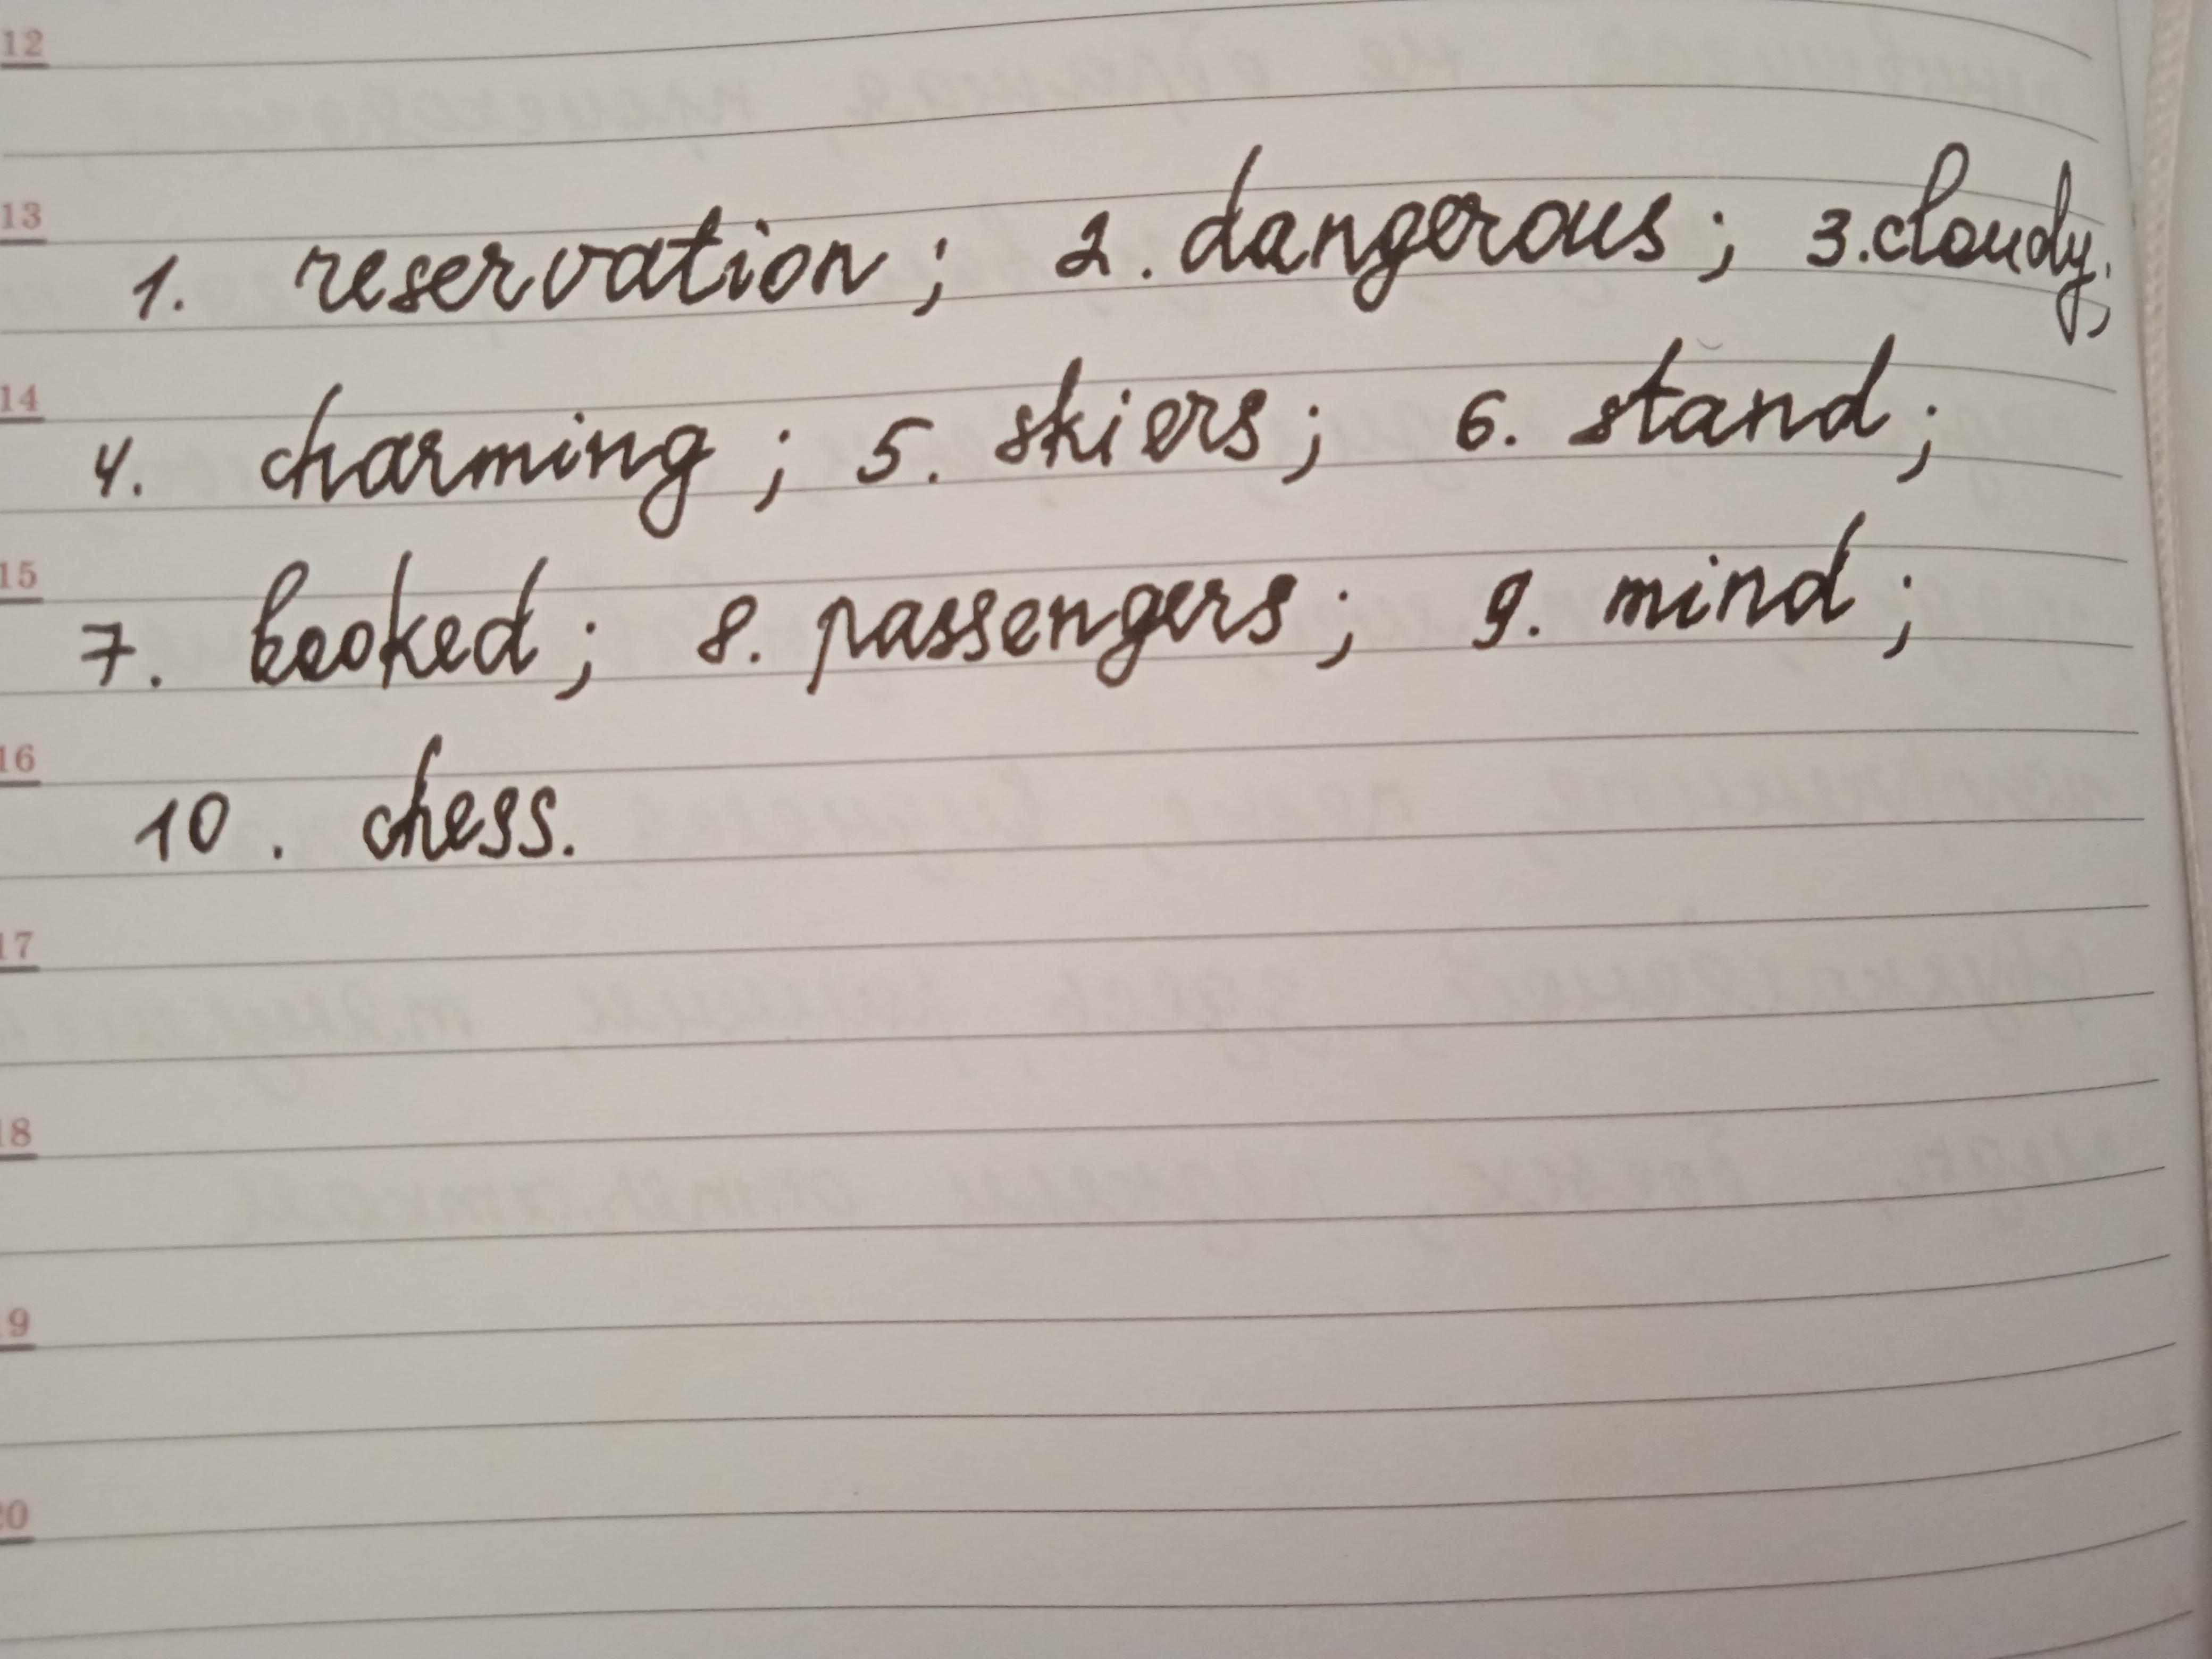 12
13
1. reservation; 2. dangerous; 3. cloudy;
14
4. charming; 5. skiers; 6. stand;
15
7. booked; 8. passengers; 9. mind;
16
10. chess.
17
18
19
20